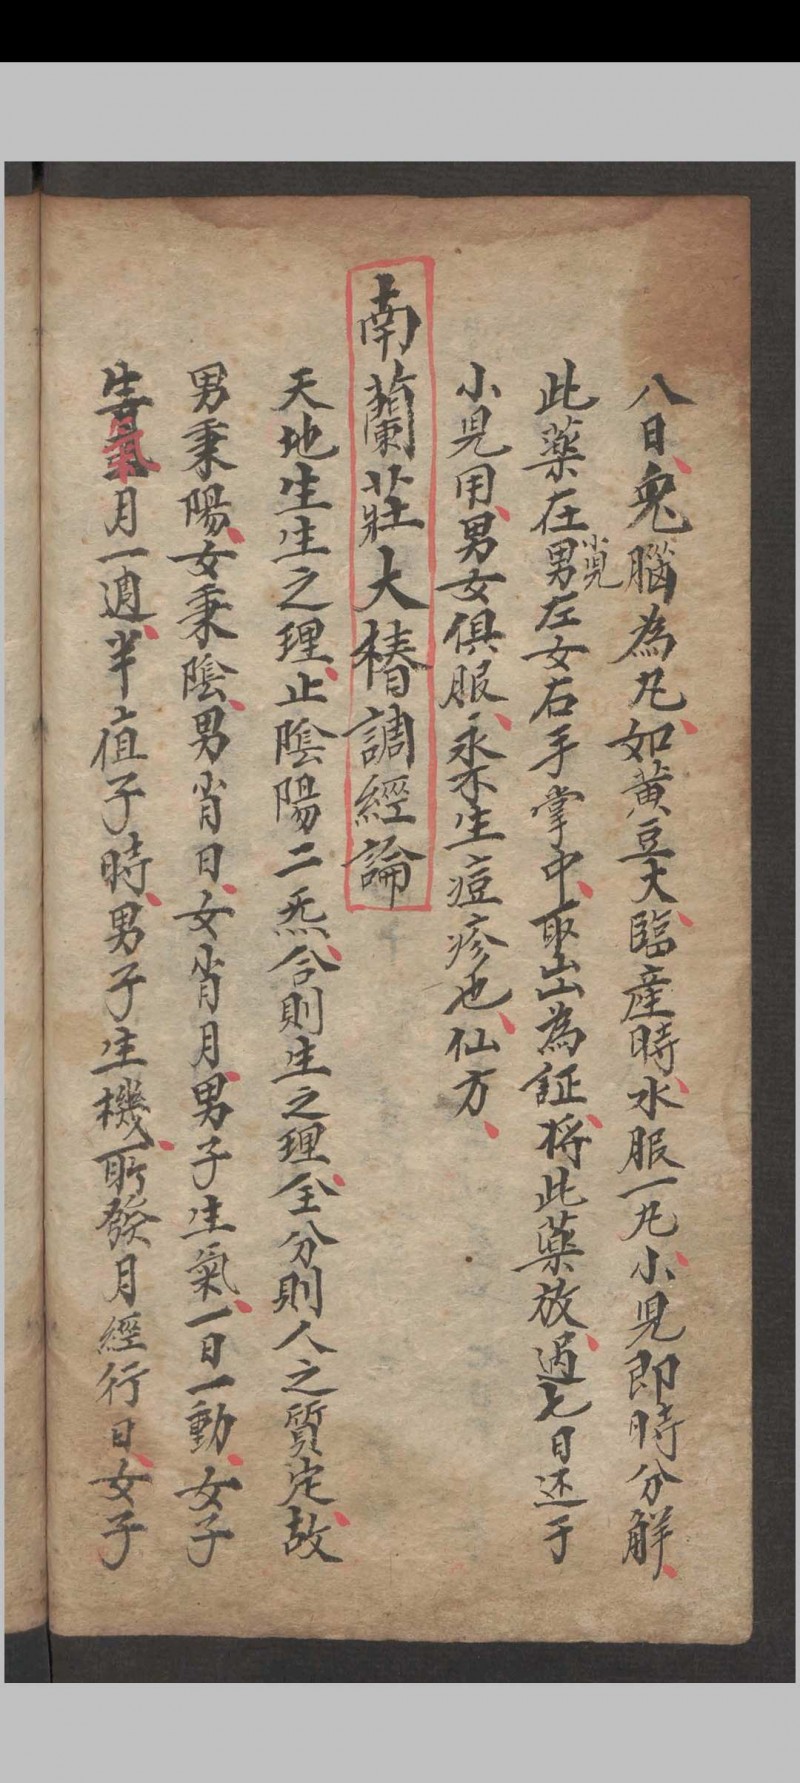 八日、兔腦為丸、如黄豆大、臨産時、水服一丸、小児即時分解、
此薬在小児男左女右手掌中、取出為証、将此薬放、過七日还于
小児用、男女俱服、永不生痘疹也、仙方、
南蘭莊大椿調經論
天地生生之理、止陰陽二炁、合則生之理全、分則人之質定、故
男秉陽、女秉陰、男肖日、女肖月、男子生氣、一日一動、女子
生氣月一週、半值子時、男子生機、所發月經行日、女子